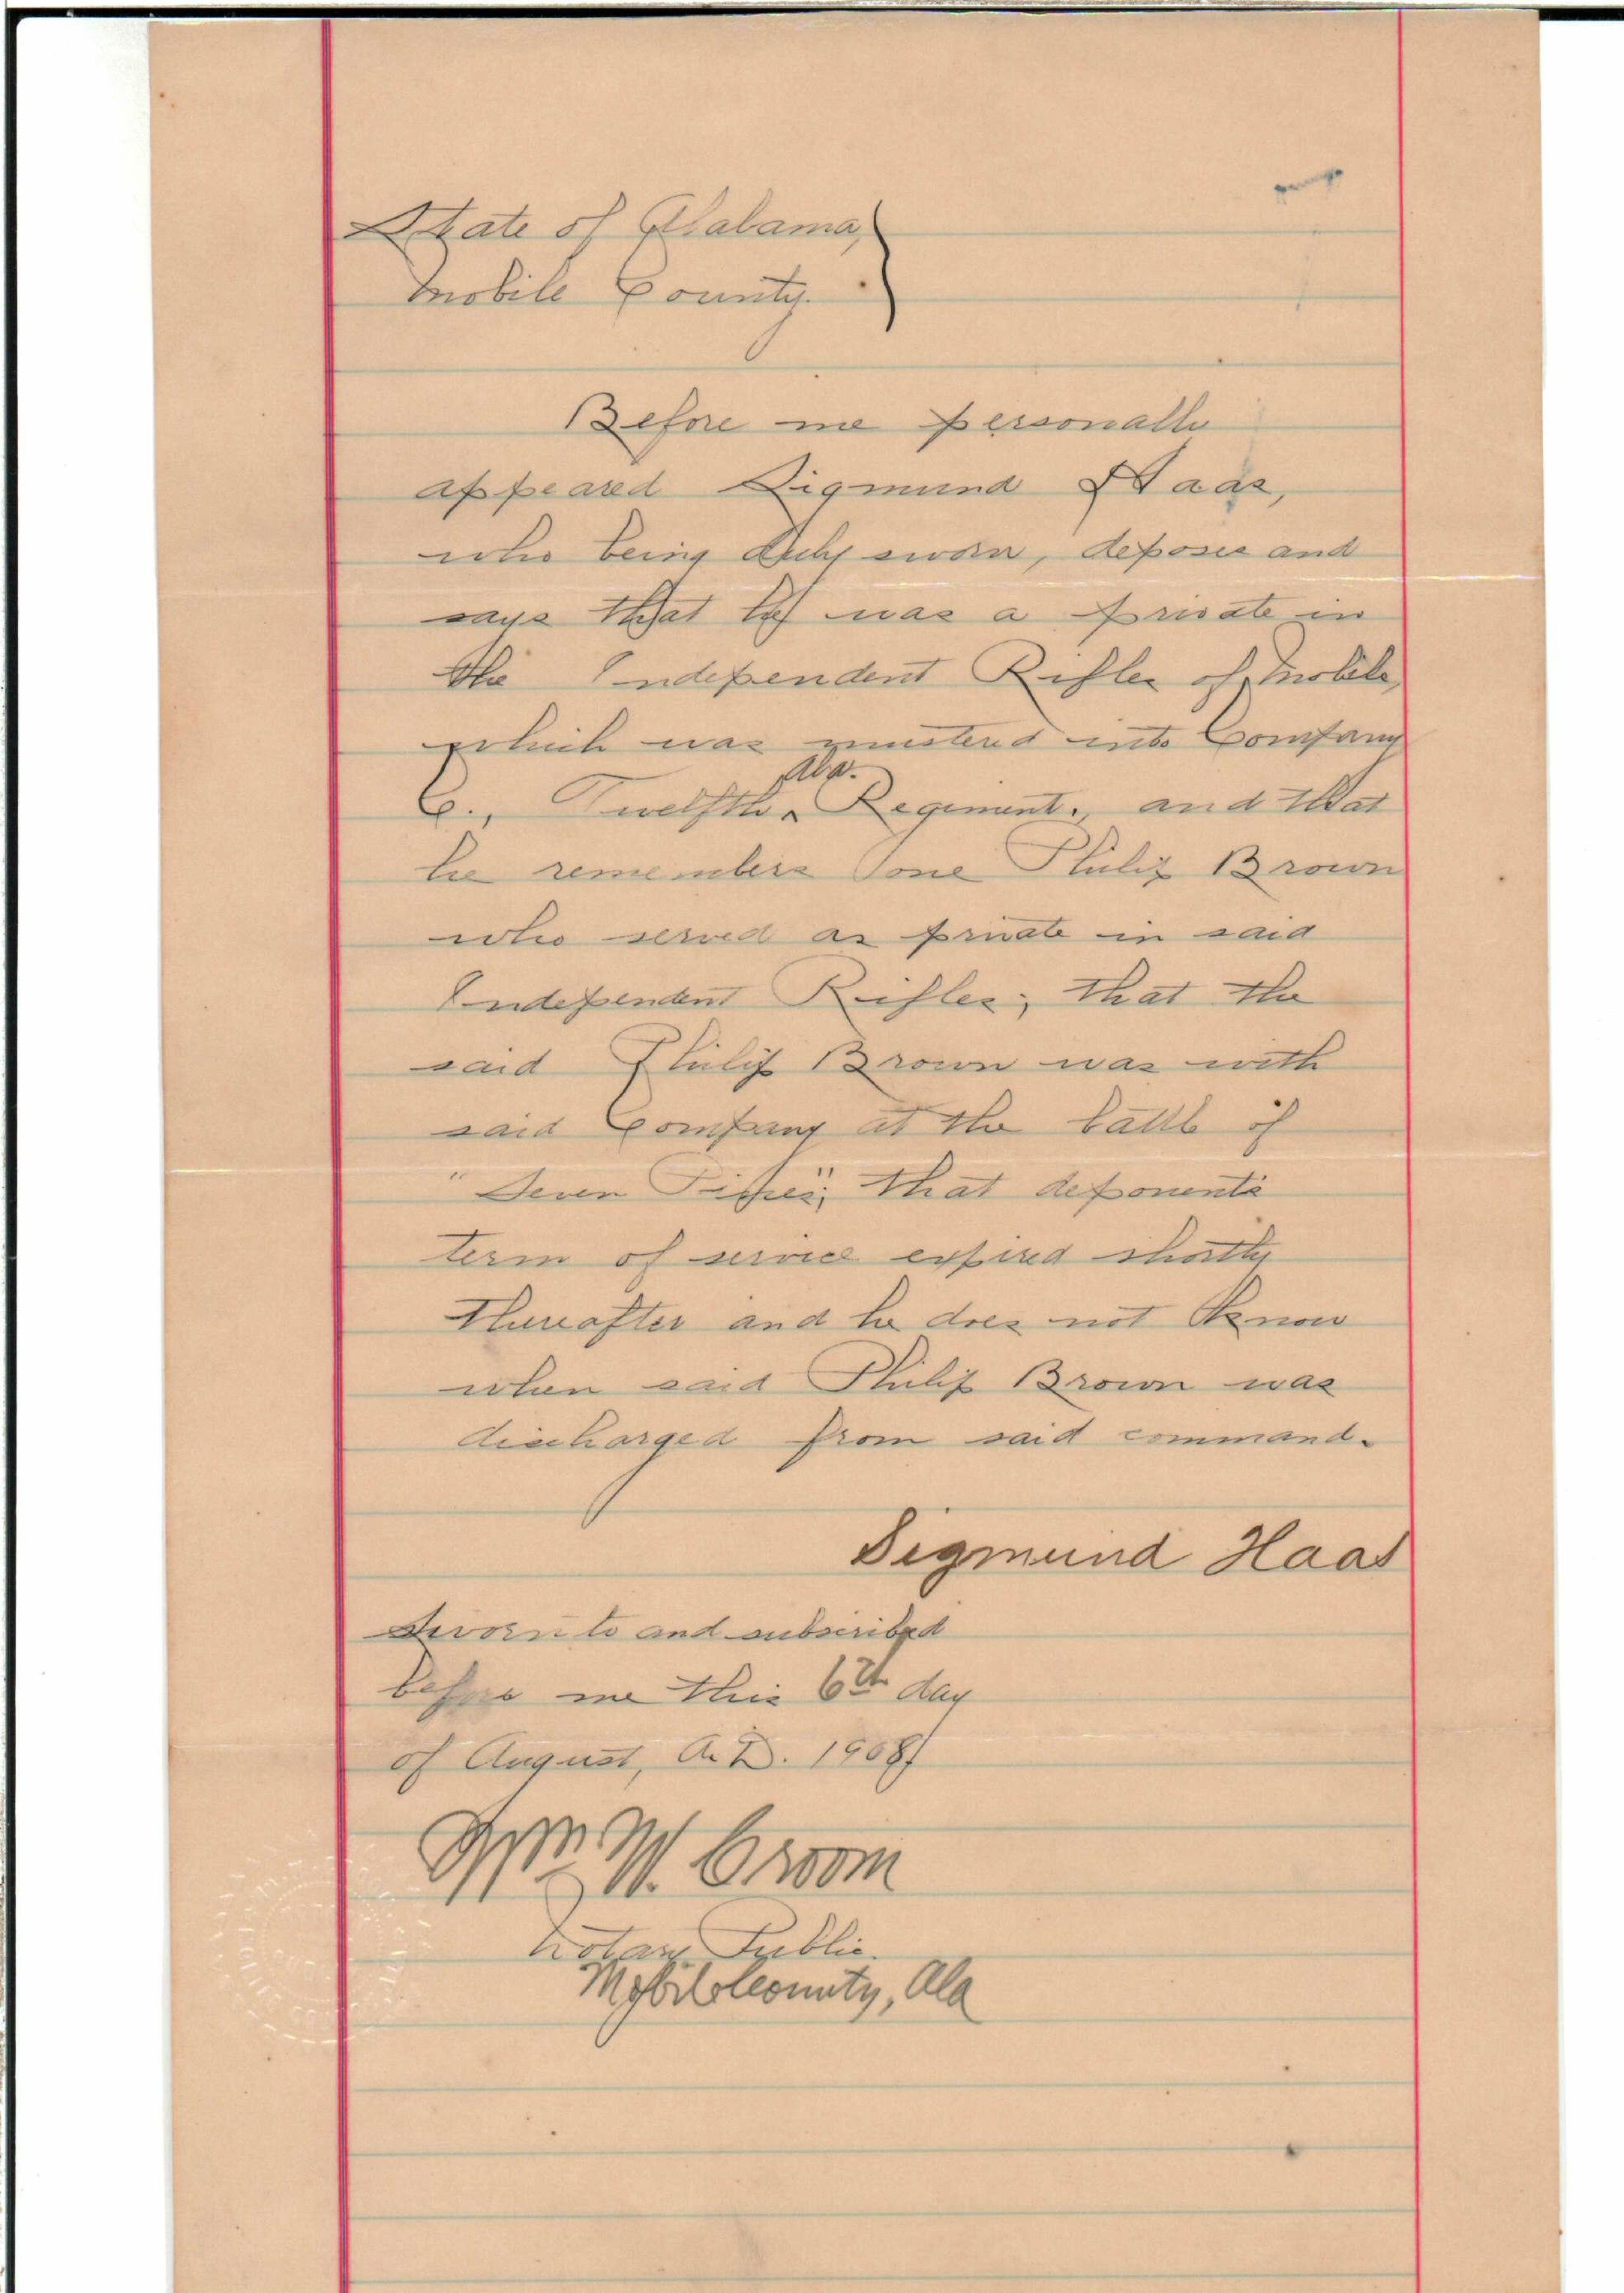 State of Alabama,
Mobile County.
Before me personally
appeared Sigmund Haas,
who being duly sworn, deposes and
says that he was a private in
the Independent Rifles of Mobile,
which was mustered into Company
Ala.
C., Twelfth ^ Regiment., and that
he remembers one Philip Brown
who served as private in said
Independent Rifles; that the
said Philip Brown was with
said Company at the battle of
"Seven Pines"; that deponents
term of service expired shortly
thereafter and he does not know
when said Philip Brown was
discharged from said command.
Sigmund Haas
Sworn to and subscribed
before me this 6th day
of August, A.D. 1908
Wm. W. Croom
Notary Public.
Mobile County, Ala